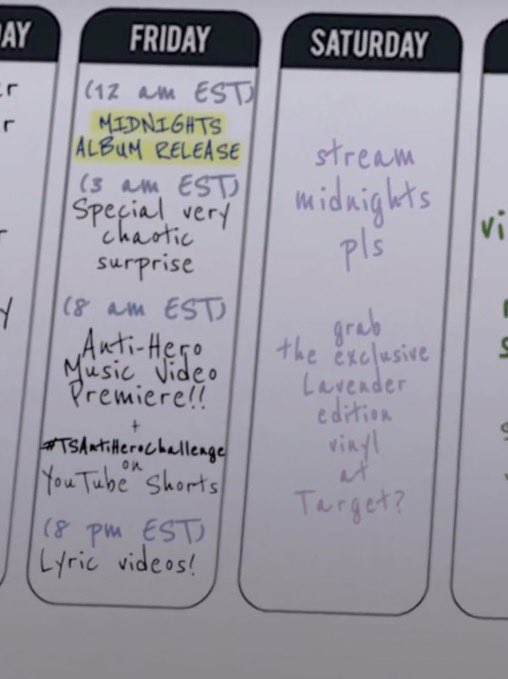 FRIDAY
(12 am EST)
MIDNIGHTS
ALBUM RELEASE
(3 am EST)
Special very
chaotic
surprise
(8 am EST)
Anti-Hero
Music Video
Premiere!!
+
#TSAntiHeroChallenge
on
YouTube Shorts
(8 pm EST)
Lyric videos!
SATURDAY
stream
midnights
pls
grab
the exclusive
Lavender
edition
vinyl
at
Target?